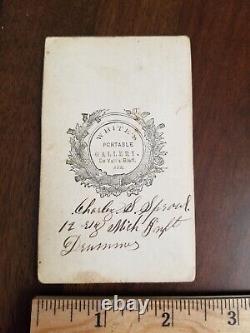 WHITE'S
PORTABLE
GALLERY.
De Vall's Bluff,
ARK.
Charley S. Sprowl
12 Mich Inft
Drummer
1
2
3